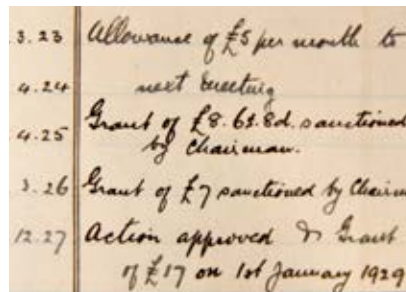 3.23 Allowance of £5 per month to
4.24 next meeting
4.25 Grant of £8.6s.8d. sanctioned
by Chairman.
3.26 Grant of £7 sanctioned by Chairm
12.27 Action approved & Grant
of £17 on 1st January 1929